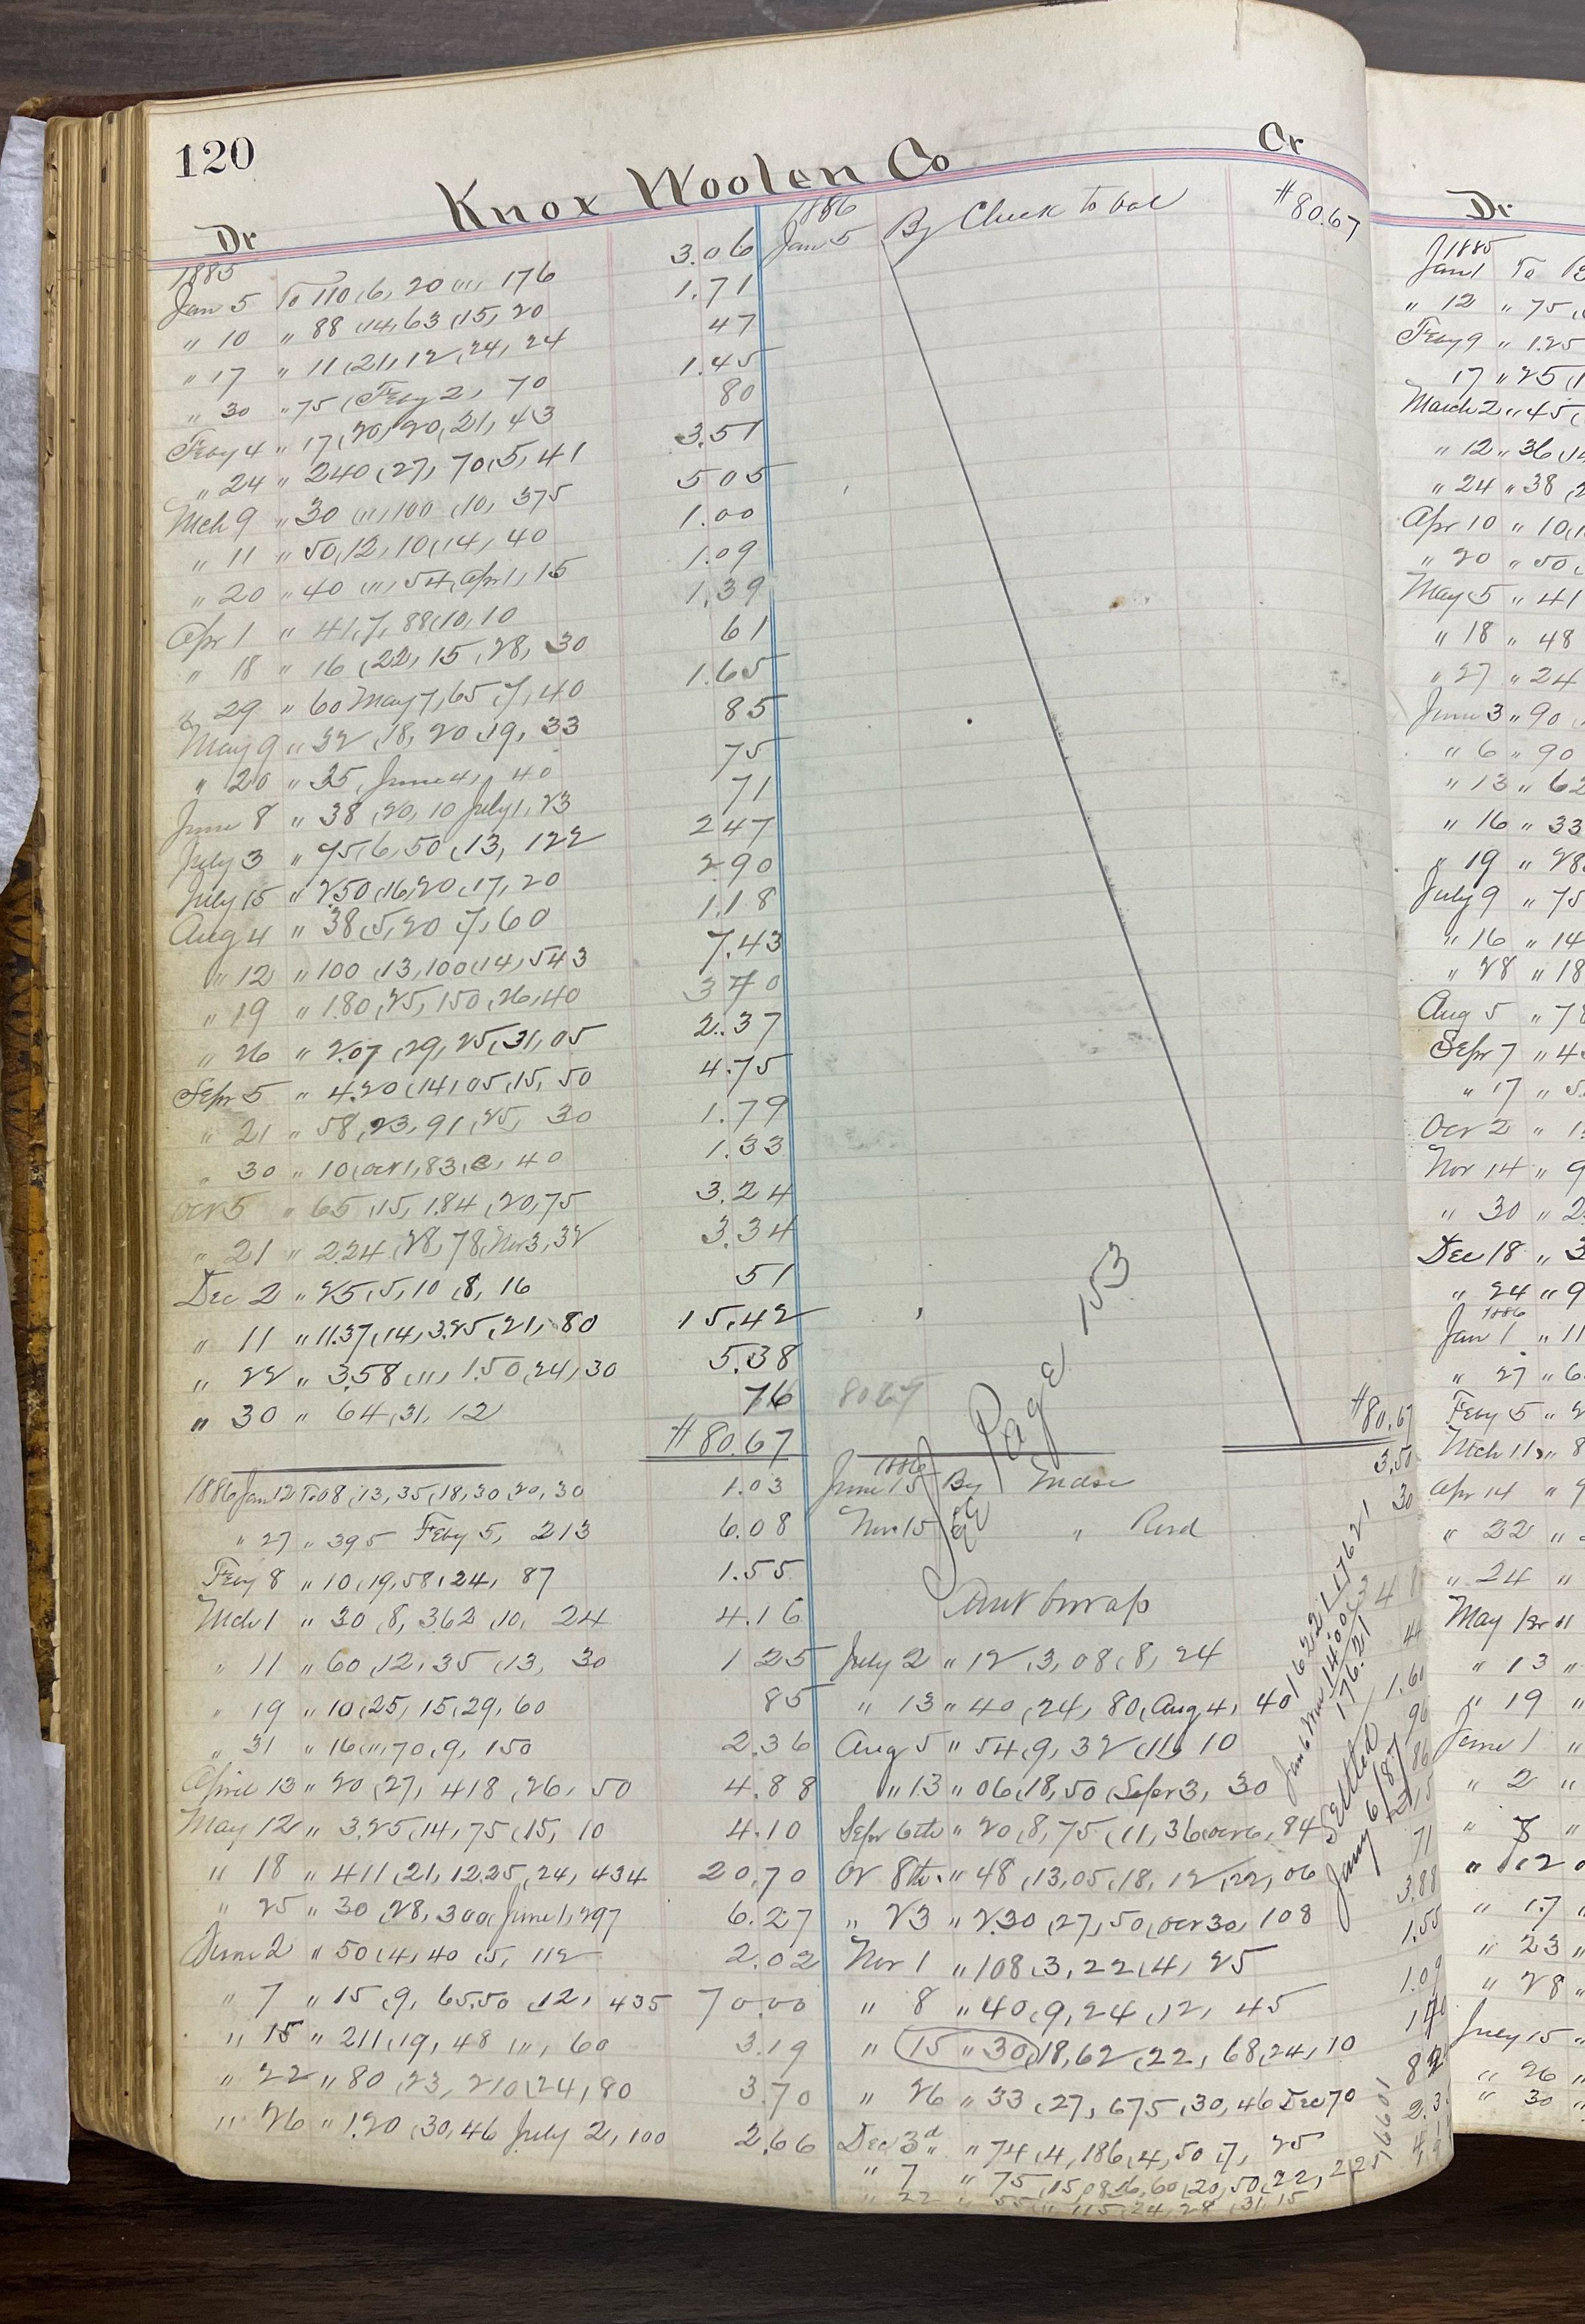 120
Knox Woolen Co
Cr
Dr
1885
Jan 5 To 110, 6, 20, 11, 176 3.06
" 10 " 88, 14, 63, 15, 20 1.71
" 17 " 11, 21, 12, 24, 24 47
" 30 " 75, Feby 2, 70 1.45
Feby 4 " 17, 20, 20, 21, 43 80
" 24 " 240, 27, 70, 5, 41 3.51
Mch 9 " 30, 11, 100, 10, 375 505
" 11 " 50, 12, 10, 14, 40 1.00
" 20 " 40, 11, 54, Apr 1, 15 1.09
Apr 1 " 41, 7, 88, 10, 10 1.39
" 18 " 16, 22, 15, 28, 30 61
" 29 " 60 May 7, 65, 7, 40 1.65
May 9 " 32, 18, 20, 19, 33 85
" 20 " 35, June 4, 40 75
June 8 " 38, 20, 10 July 1, 23 71
July 3 " 75, 6, 50, 13, 122 247
July 15 " 2.50, 16, 20, 17, 20 2.90
Aug 4 " 38, 5, 20, 7, 60 1.18
" 12 " 100, 13, 100, 14, 543 7.43
" 19 " 1.80, 25, 150, 26, 40 370
" 26 " 2.07, 29, 25, 31, 05 2.37
Sepr 5 " 4.20, 14, 05, 15, 50 4.75
" 21 " 58, 23, 91, 25, 30 1.79
" 30 " 10, Oct 1, 83, 2, 40 1.33
Oct 5 " 65, 15, 1.84, 20, 75 3.24
" 21 " 2.24, 28, 78, Nov 3, 32 3.34
Dec 2 " 25, 5, 10, 8, 16 51
" 11 " 11.37, 14, 3.25, 21, 80 15.42
" 22 " 3.58, 11, 1.50, 24, 30 5.38
" 30 " 64, 31, 12 76
$80.67
1886 Jan 12 To 08, 13, 35, 18, 30, 20, 30 1.03
" 27 " 395 Feby 5, 213 6.08
Feby 8 " 10, 19, 58, 24, 87 1.55
Mch 1 " 30, 8, 362, 10, 24 4.16
" 11 " 60, 12, 35, 13, 30 1 25
" 19 " 10, 25, 15, 29, 60 85
" 31 " 16, 11, 70, 9, 150 2.36
April 13 " 20, 27, 418, 26, 50 4.88
May 12 " 3.25, 14, 75, 15, 10 4.10
" 18 " 411, 21, 12.25, 24, 434 20.70
" 25 " 30, 28, 300, June 1, 297 6.27
June 2 " 50, 4, 40, 5, 112 2.02
" 7 " 15, 9, 65.50, 12, 435 70.00
" 15 " 211, 19, 48, 11, 60 3.19
" 22 " 80, 23, 210, 24, 80 3.70
" 26 " 1.20, 30, 46 July 2, 100 2.66
1886
Jan 5 By Check to bal $80.67
8067
See Page 153
$80.67
1886
June 15 By Mdse 3.50
Nov 15 " " 30
July 2 " 12, 3, 08, 8, 24 44
" 13 " 40, 24, 80, Aug 4, 40 1.60
Aug 5 " 54, 9, 32, 11, 10 96
" 13 " 06, 18, 50, Sepr 3, 30 86
Sepr 6th " 20, 8, 75, 11, 36, Oct 6, 84 2.15
Oc 8th " 48, 13, 05, 18, 12, 22, 06 71
" 23 " 2.30, 27, 50, Oct 30, 108 3.88
Nov 1 " 108, 3, 22, 4, 25 1.55
" 8 " 40, 9, 24, 12, 45 1.09
" 15 " 30, 18, 62, 22, 68, 24, 10
" 26 " 33, 27, 675, 30, 46 Dec 70
Dec 3d " 74, 4, 186, 4, 50, 7, 25
" 7 " 75, 15, 08, 16, 60, 20, 50, 22, 225
" 22 " 55, 11, 115, 24, 28, 31, 15
162.21
14.00
176.21
17621
Settled
Jany 6/87
17660
Dr
1885
Jany 1 To
" 12 " 75
Feby 9 " 1.25
17 " 25
March 2 " 45
" 12 " 36
" 24 " 38
Apr 10 " 10
" 20 " 50
May 5 " 41
" 18 " 48
" 27 " 24
June 3 " 90
" 6 " 90
" 13 " 62
" 16 " 33
" 19 " 28
July 9 " 75
" 16 " 14
" 28 " 18
Aug 5 " 78
Sepr 7 " 4
" 17 "
Oct 2 "
Nov 14 " 9
" 30 " 2
Dec 18 " 3
" 24 " 9
1886
Jan 1 " 11
" 27 " 6
Feby 5 "
Mch 11 " 8
Apr 14 " 9
" 22 "
" 24 "
May 1st "
" 13 "
" 19 "
June 1 "
" 2 "
" 8 "
" 12
" 17 "
" 23 "
" 28 "
July 15 "
" 26 "
" 30 "